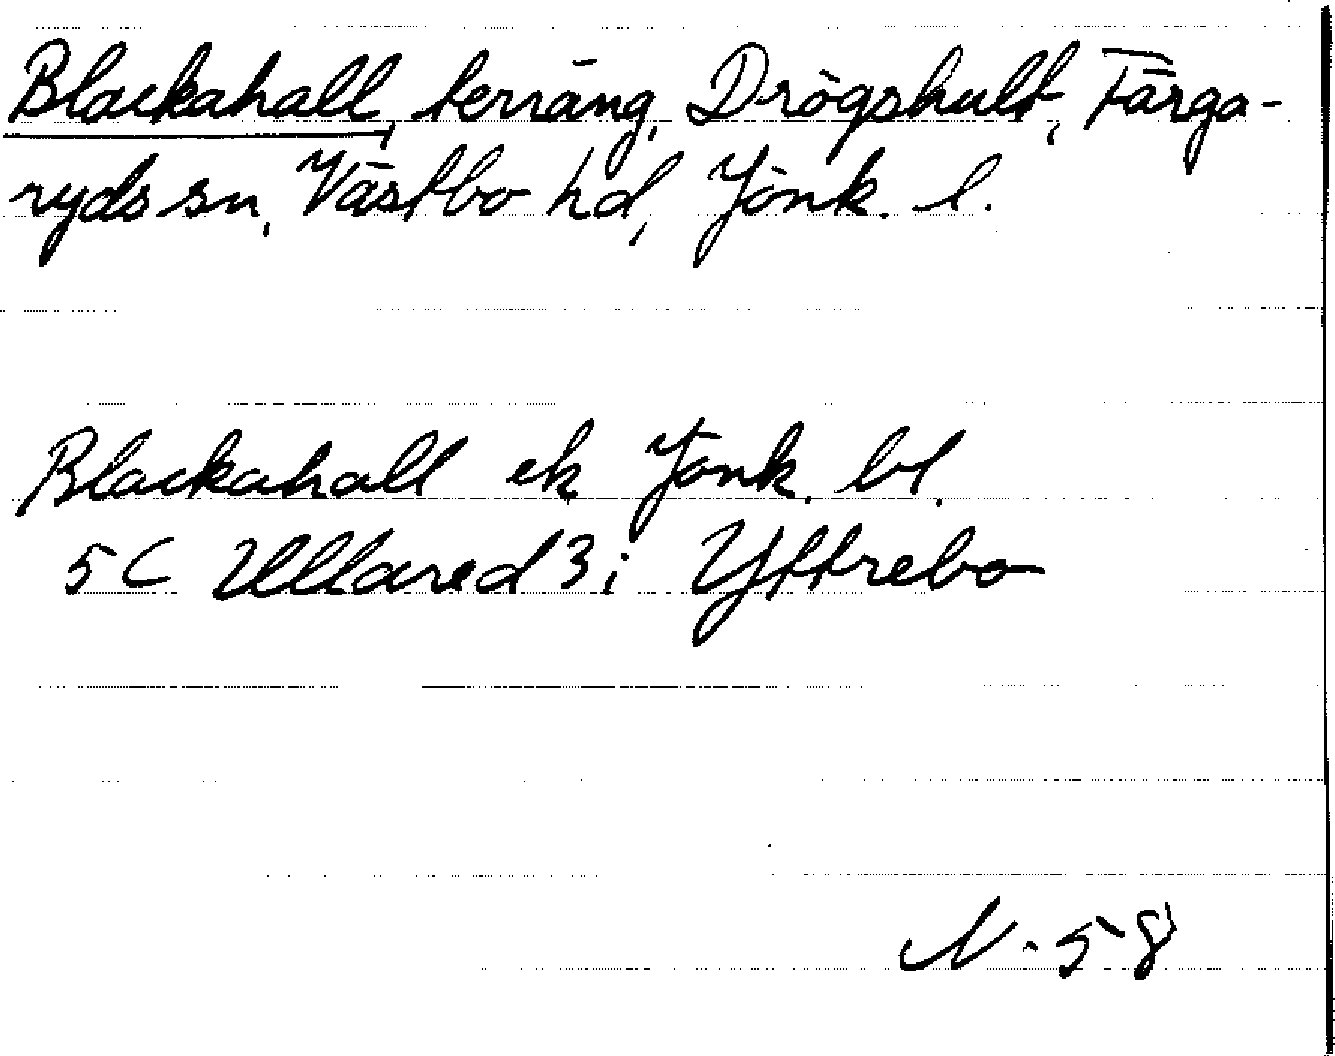 Blackahall, terräng, Drögshult, Färga-
ryds sn, Västbo hd, Jönk. l.
Blackahall ek Jönk. bl.
5C Ullared 3i Yttrebo
N-58